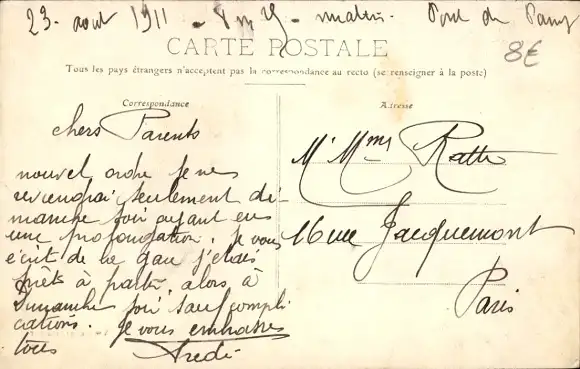 23. aout 1911 - matin.
8€
CARTE POSTALE
Tous les pays étrangers n'acceptent pas la correspondance au recto (se renseigner à la poste)
Correspondance
chers Parents
nouvel ordre je ne
reviendrai seulement di-
manche soir ayant eu
une prolongation. Je vous
écrit de la gare j'étais
prêts à partir, alors à
Dimanche soir sauf compli
cations. Je vous embrasse
tous
Adresse
Mr Mme Ratte
16 rue Jacquemont
Paris